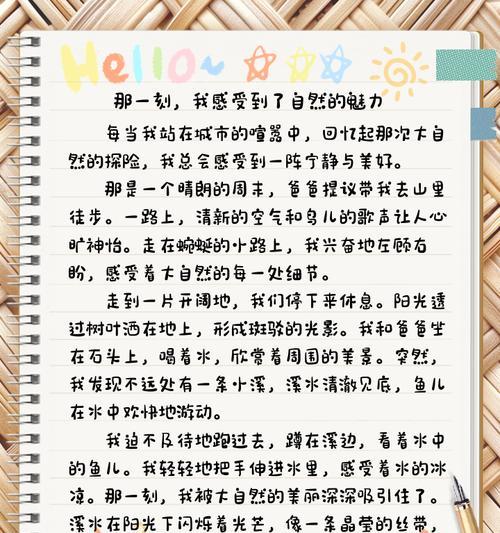 Hello~
那一刻，我感受到了自然的魅力
每当我站在城市的喧嚣中，回忆起那次大自
然的探险，我总会感受到一阵宁静与美好。
那是一个晴朗的周末，爸爸提议带我去山里
徒步。一路上，清新的空气和鸟儿的歌声让人心
旷神怡。走在蜿蜒的小路上，我兴奋地左顾右
盼，感受着大自然的每一处细节。
走到一片开阔地，我们停下来休息。阳光透
过树叶洒在地上，形成斑驳的光影。我和爸爸坐
在石头上，喝着水，欣赏着周围的美景。突然，
我发现不远处有一条小溪，溪水清澈见底，鱼儿
在水中欢快地游动。
我迫不及待地跑过去，蹲在溪边，看着水中
的鱼儿。我轻轻地把手伸进水里，感受着水的冰
凉。那一刻，我被大自然的美丽深深吸引住了。
溪水在阳光下闪烁着光芒，像一条晶莹的丝带，